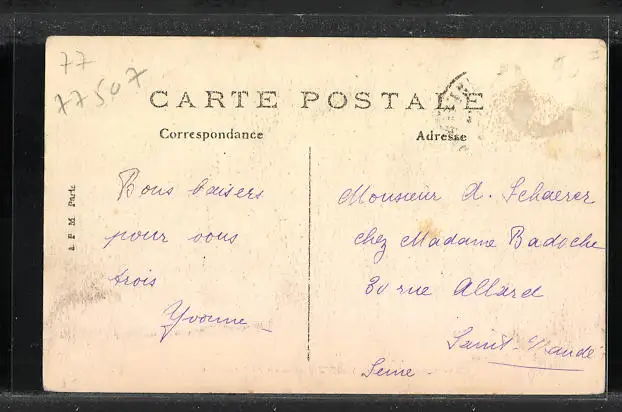 77
77507
CARTE POSTALE
Correspondance
Adresse
Bons baisers
pour vous
trois
Yvonne
Monsieur A. Schaerer
chez Madame Badoche
30 rue Allard
Saint-Mandé
Seine
A. P. M. Paris